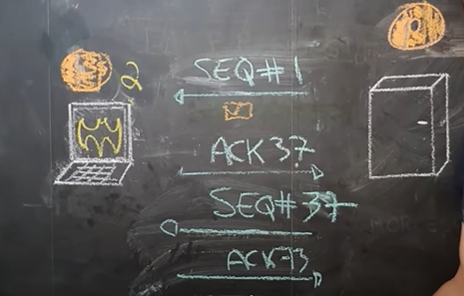 2
SEQ#1
ACK 37
SEQ#37
ACK 73